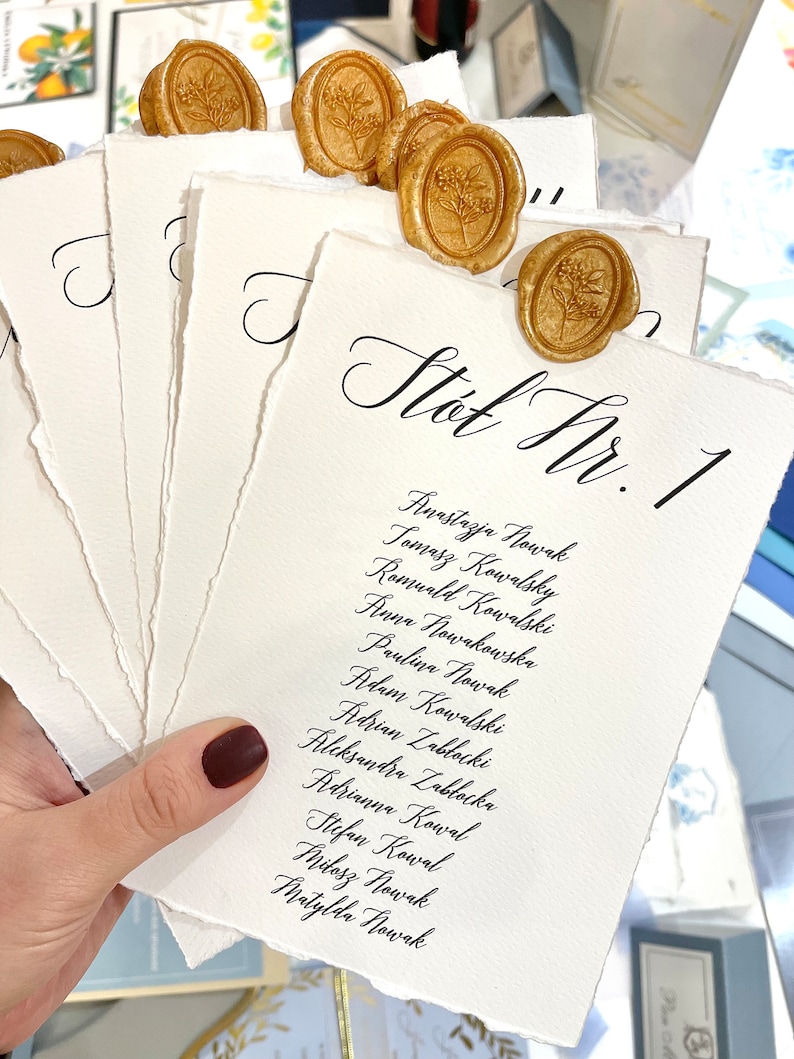 Stół Nr. 1
Anastazja Nowak
Tomasz Kowalsky
Romuald Kowalski
Anna Nowakowska
Paulina Nowak
Adam Kowalski
Adrian Zabłocki
Aleksandra Zabłocka
Adrianna Kowal
Stefan Kowal
Miłosz Nowak
Matylda Nowak